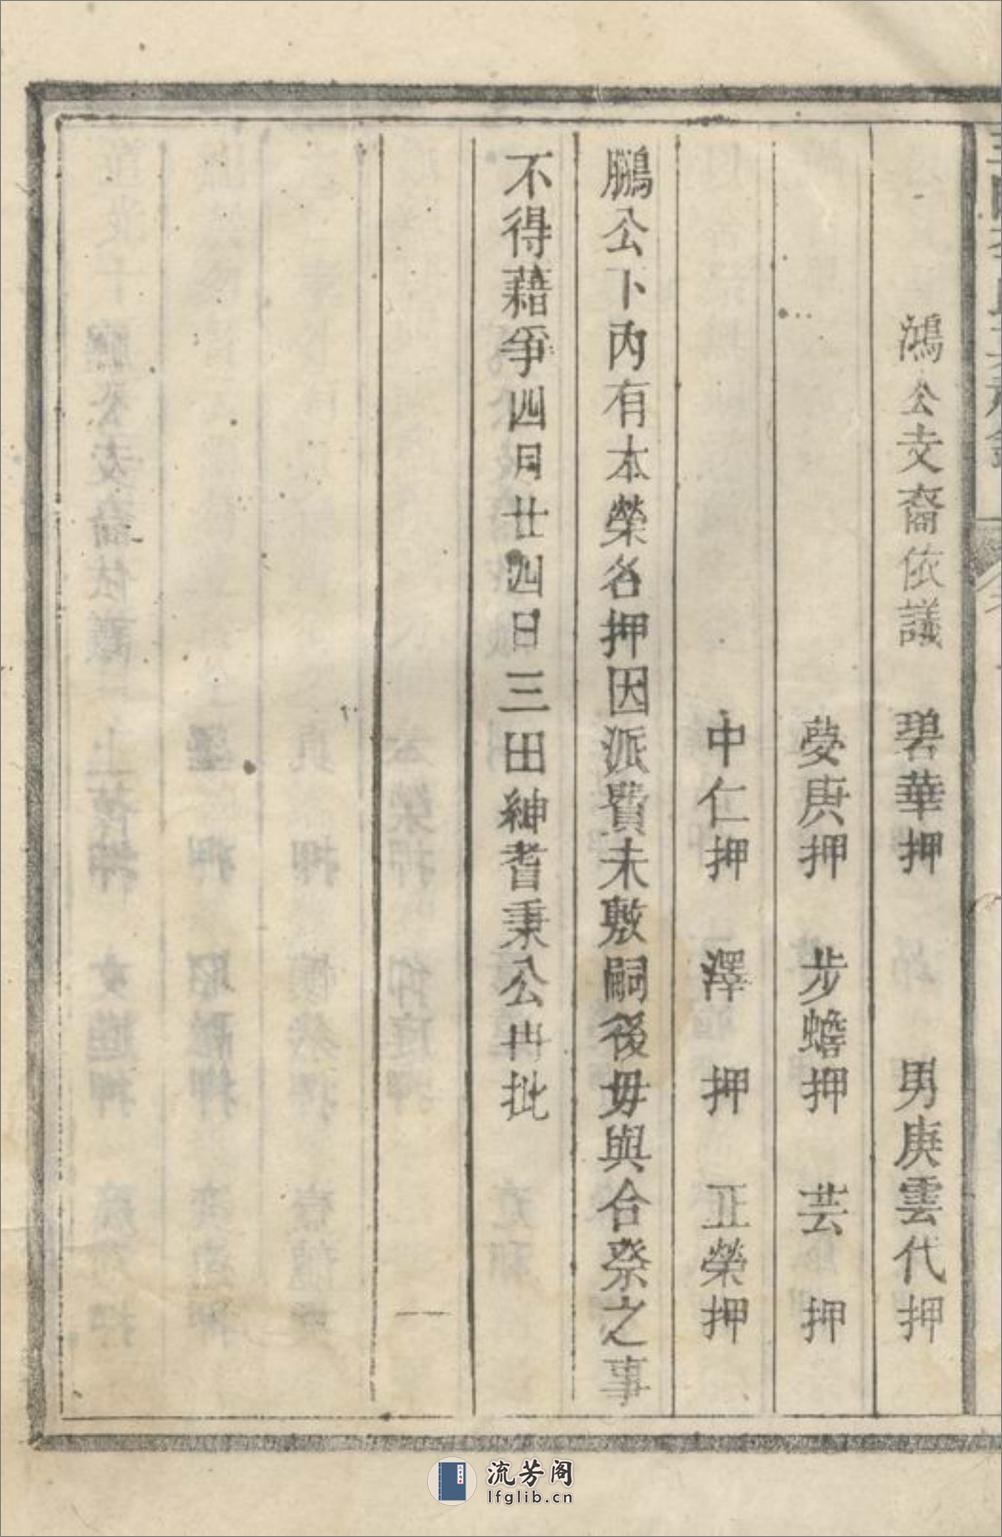 鴻公支裔依議 碧華押 男庚雲代押
夢庚押 步蟾押 芸押
中仁押 澤押 正榮押
鵬公卜內有本榮名押因派費未敷嗣後毋與合祭之事
不得藉爭四月廿四日三田紳耆秉公冉批
流芳阁
lfglib.cn